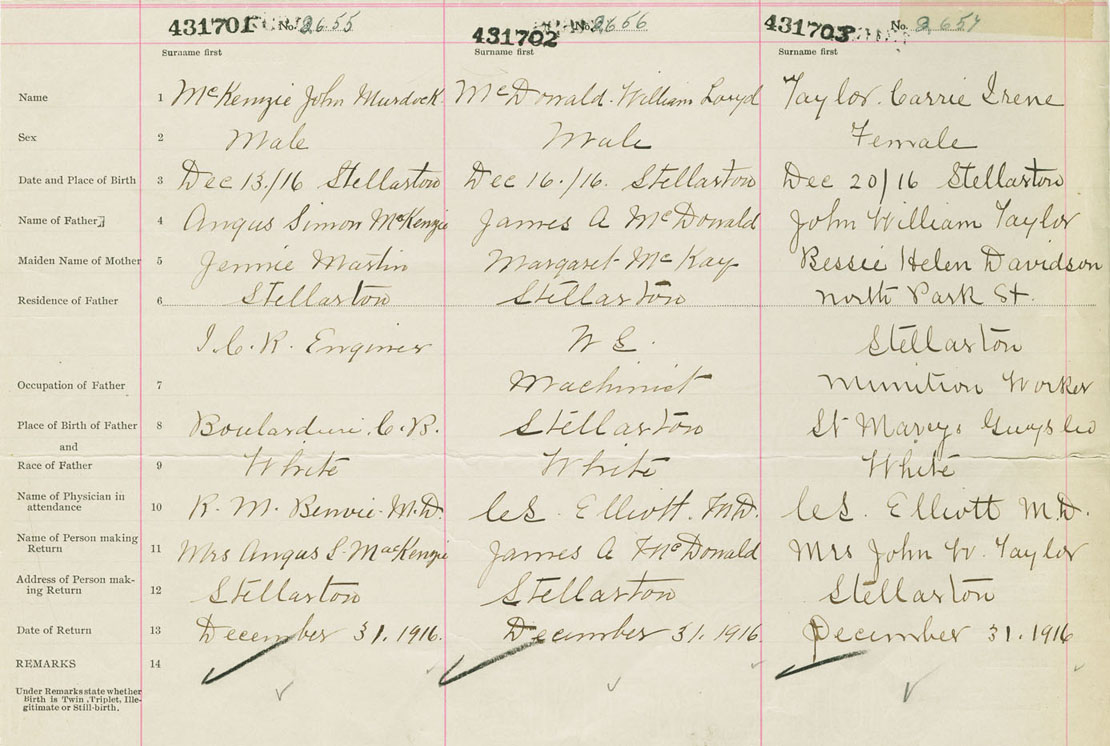 431701 No. 2655 431702 No. 2656 431703 No. 2657
Surname first Surname first Surname first
Name 1 McKenzie John Murdock McDonald. William Loyd Taylor. Carrie Irene
Sex 2 Male Male Female
Date and Place of Birth 3 Dec 13./16 Stellarton Dec 16./16. Stellarton Dec 20/16 Stellarton
Name of Father 4 Angus Simon McKenzie James A McDonald John William Taylor
Maiden Name of Mother 5 Jennie Martin Margaret McKay Bessie Helen Davidson
Residence of Father 6 Stellarton Stellarton North Park St.
I.C.R. Engineer Stellarton
Occupation of Father 7 Machinist Munition Worker
Place of Birth of Father 8 Boulardrie. C.B. Stellarton St Marys Guys Co
and
Race of Father 9 White White White
Name of Physician in
attendance 10 R. M. Benvie. M.D. Elliott. M.D. Elliott M.D.
Name of Person making
Return 11 Mrs Angus S. MacKenzie James A McDonald Mrs John W. Taylor
Address of Person mak-
ing Return 12 Stellarton Stellarton Stellarton
Date of Return 13 December 31. 1916. December 31. 1916. December 31. 1916
REMARKS 14
Under Remarks state whether
Birth is Twin, Triplet, Ille-
gitimate or Still-birth.